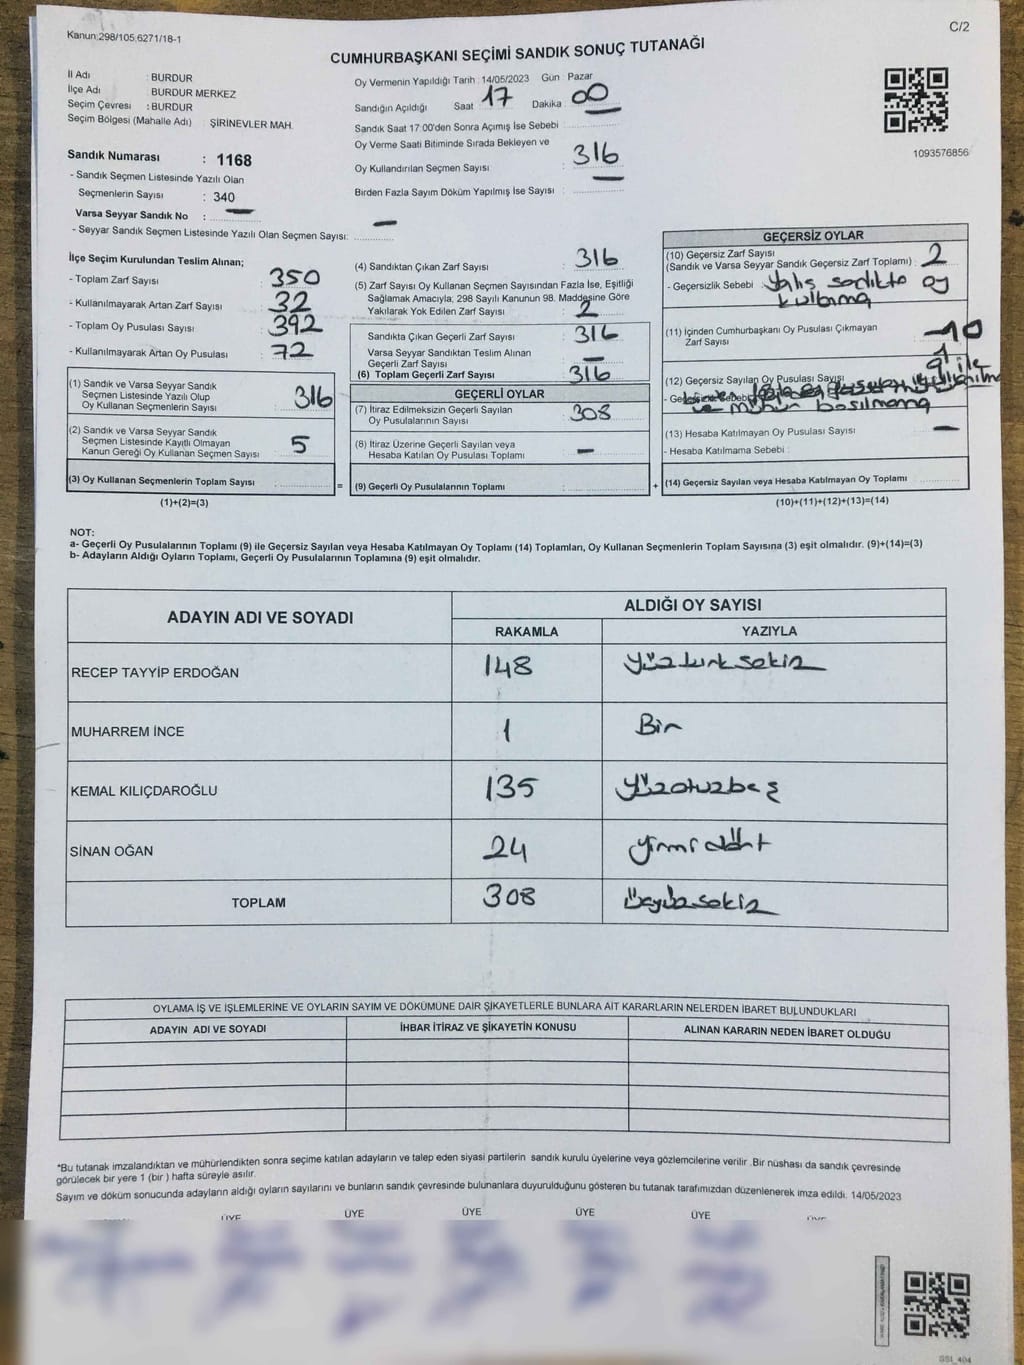 Kanun:298/105,6271/18-1
C/2
CUMHURBAŞKANI SEÇİMİ SANDIK SONUÇ TUTANAĞI
İl Adı : BURDUR
İlçe Adı : BURDUR MERKEZ
Seçim Çevresi : BURDUR
Seçim Bölgesi (Mahalle Adı) : ŞİRİNEVLER MAH.
Sandık Numarası : 1168
- Sandık Seçmen Listesinde Yazılı Olan
Seçmenlerin Sayısı : 340
Varsa Seyyar Sandık No : —
- Seyyar Sandık Seçmen Listesinde Yazılı Olan Seçmen Sayısı: —
Oy Vermenin Yapıldığı Tarih : 14/05/2023 Gün : Pazar
Sandığın Açıldığı Saat : 17 Dakika : 00
Sandık Saat 17:00'den Sonra Açımış İse Sebebi : —
Oy Verme Saati Bitiminde Sırada Bekleyen ve
Oy Kullandırılan Seçmen Sayısı : 316
Birden Fazla Sayım Döküm Yapılmış İse Sayısı : —
1093576856
İlçe Seçim Kurulundan Teslim Alınan;
- Toplam Zarf Sayısı : 350
- Kullanılmayarak Artan Zarf Sayısı : 32
- Toplam Oy Pusulası Sayısı : 392
- Kullanılmayarak Artan Oy Pusulası : 72
(1) Sandık ve Varsa Seyyar Sandık
Seçmen Listesinde Yazılı Olup
Oy Kullanan Seçmenlerin Sayısı : 316
(2) Sandık ve Varsa Seyyar Sandık
Seçmen Listesinde Kayıtlı Olmayan
Kanun Gereği Oy Kullanan Seçmen Sayısı : 5
(3) Oy Kullanan Seçmenlerin Toplam Sayısı :
(1)+(2)=(3)
=
(4) Sandıktan Çıkan Zarf Sayısı : 316
(5) Zarf Sayısı Oy Kullanan Seçmen Sayısından Fazla İse, Eşitliği
Sağlamak Amacıyla; 298 Sayılı Kanunun 98. Maddesine Göre
Yakılarak Yok Edilen Zarf Sayısı : 2
Sandıkta Çıkan Geçerli Zarf Sayısı : 316
Varsa Seyyar Sandıktan Teslim Alınan
Geçerli Zarf Sayısı : —
(6) Toplam Geçerli Zarf Sayısı : 316
GEÇERLİ OYLAR
(7) İtiraz Edilmeksizin Geçerli Sayılan
Oy Pusulalarının Sayısı : 308
(8) İtiraz Üzerine Geçerli Sayılan veya
Hesaba Katılan Oy Pusulası Toplamı : —
(9) Geçerli Oy Pusulalarının Toplamı :
+
GEÇERSİZ OYLAR
(10) Geçersiz Zarf Sayısı
(Sandık ve Varsa Seyyar Sandık Geçersiz Zarf Toplamı) : 2
- Geçersizlik Sebebi : Yalış oy
(11) İçinden Cumhurbaşkanı Oy Pusulası Çıkmayan
Zarf Sayısı
(12) Geçersiz Sayılan Oy Pusulası Sayısı
ve mühür basılmama
(13) Hesaba Katılmayan Oy Pusulası Sayısı : —
- Hesaba Katılmama Sebebi :
(14) Geçersiz Sayılan veya Hesaba Katılmayan Oy Toplamı
(10)+(11)+(12)+(13)=(14)
NOT:
a- Geçerli Oy Pusulalarının Toplamı (9) ile Geçersiz Sayılan veya Hesaba Katılmayan Oy Toplamı (14) Toplamları, Oy Kullanan Seçmenlerin Toplam Sayısına (3) eşit olmalıdır. (9)+(14)=(3)
b- Adayların Aldığı Oyların Toplamı, Geçerli Oy Pusulalarının Toplamına (9) eşit olmalıdır.
ADAYIN ADI VE SOYADI
ALDIĞI OY SAYISI
RAKAMLA YAZIYLA
RECEP TAYYİP ERDOĞAN 148 Yüzkırksekiz
MUHARREM İNCE 1 Bir
KEMAL KILIÇDAROĞLU 135 Yüzotuzbeş
SİNAN OĞAN 24 yirmi dört
TOPLAM 308 Üçyüzsekiz
OYLAMA İŞ VE İŞLEMLERİNE VE OYLARIN SAYIM VE DÖKÜMÜNE DAİR ŞİKAYETLERLE BUNLARA AİT KARARLARIN NELERDEN İBARET BULUNDUKLARI
ADAYIN ADI VE SOYADI İHBAR İTİRAZ VE ŞİKAYETİN KONUSU ALINAN KARARIN NEDEN İBARET OLDUĞU
*Bu tutanak imzalandıktan ve mühürlendikten sonra seçime katılan adayların ve talep eden siyasi partilerin sandık kurulu üyelerine veya gözlemcilerine verilir .Bir nüshası da sandık çevresinde
görülecek bir yere 1 (bir ) hafta süreyle asılır.
Sayım ve döküm sonucunda adayların aldığı oyların sayılarını ve bunların sandık çevresinde bulunanlara duyurulduğunu gösteren bu tutanak tarafımızdan düzenlenerek imza edildi. 14/05/2023
ÜYE ÜYE ÜYE ÜYE ÜYE